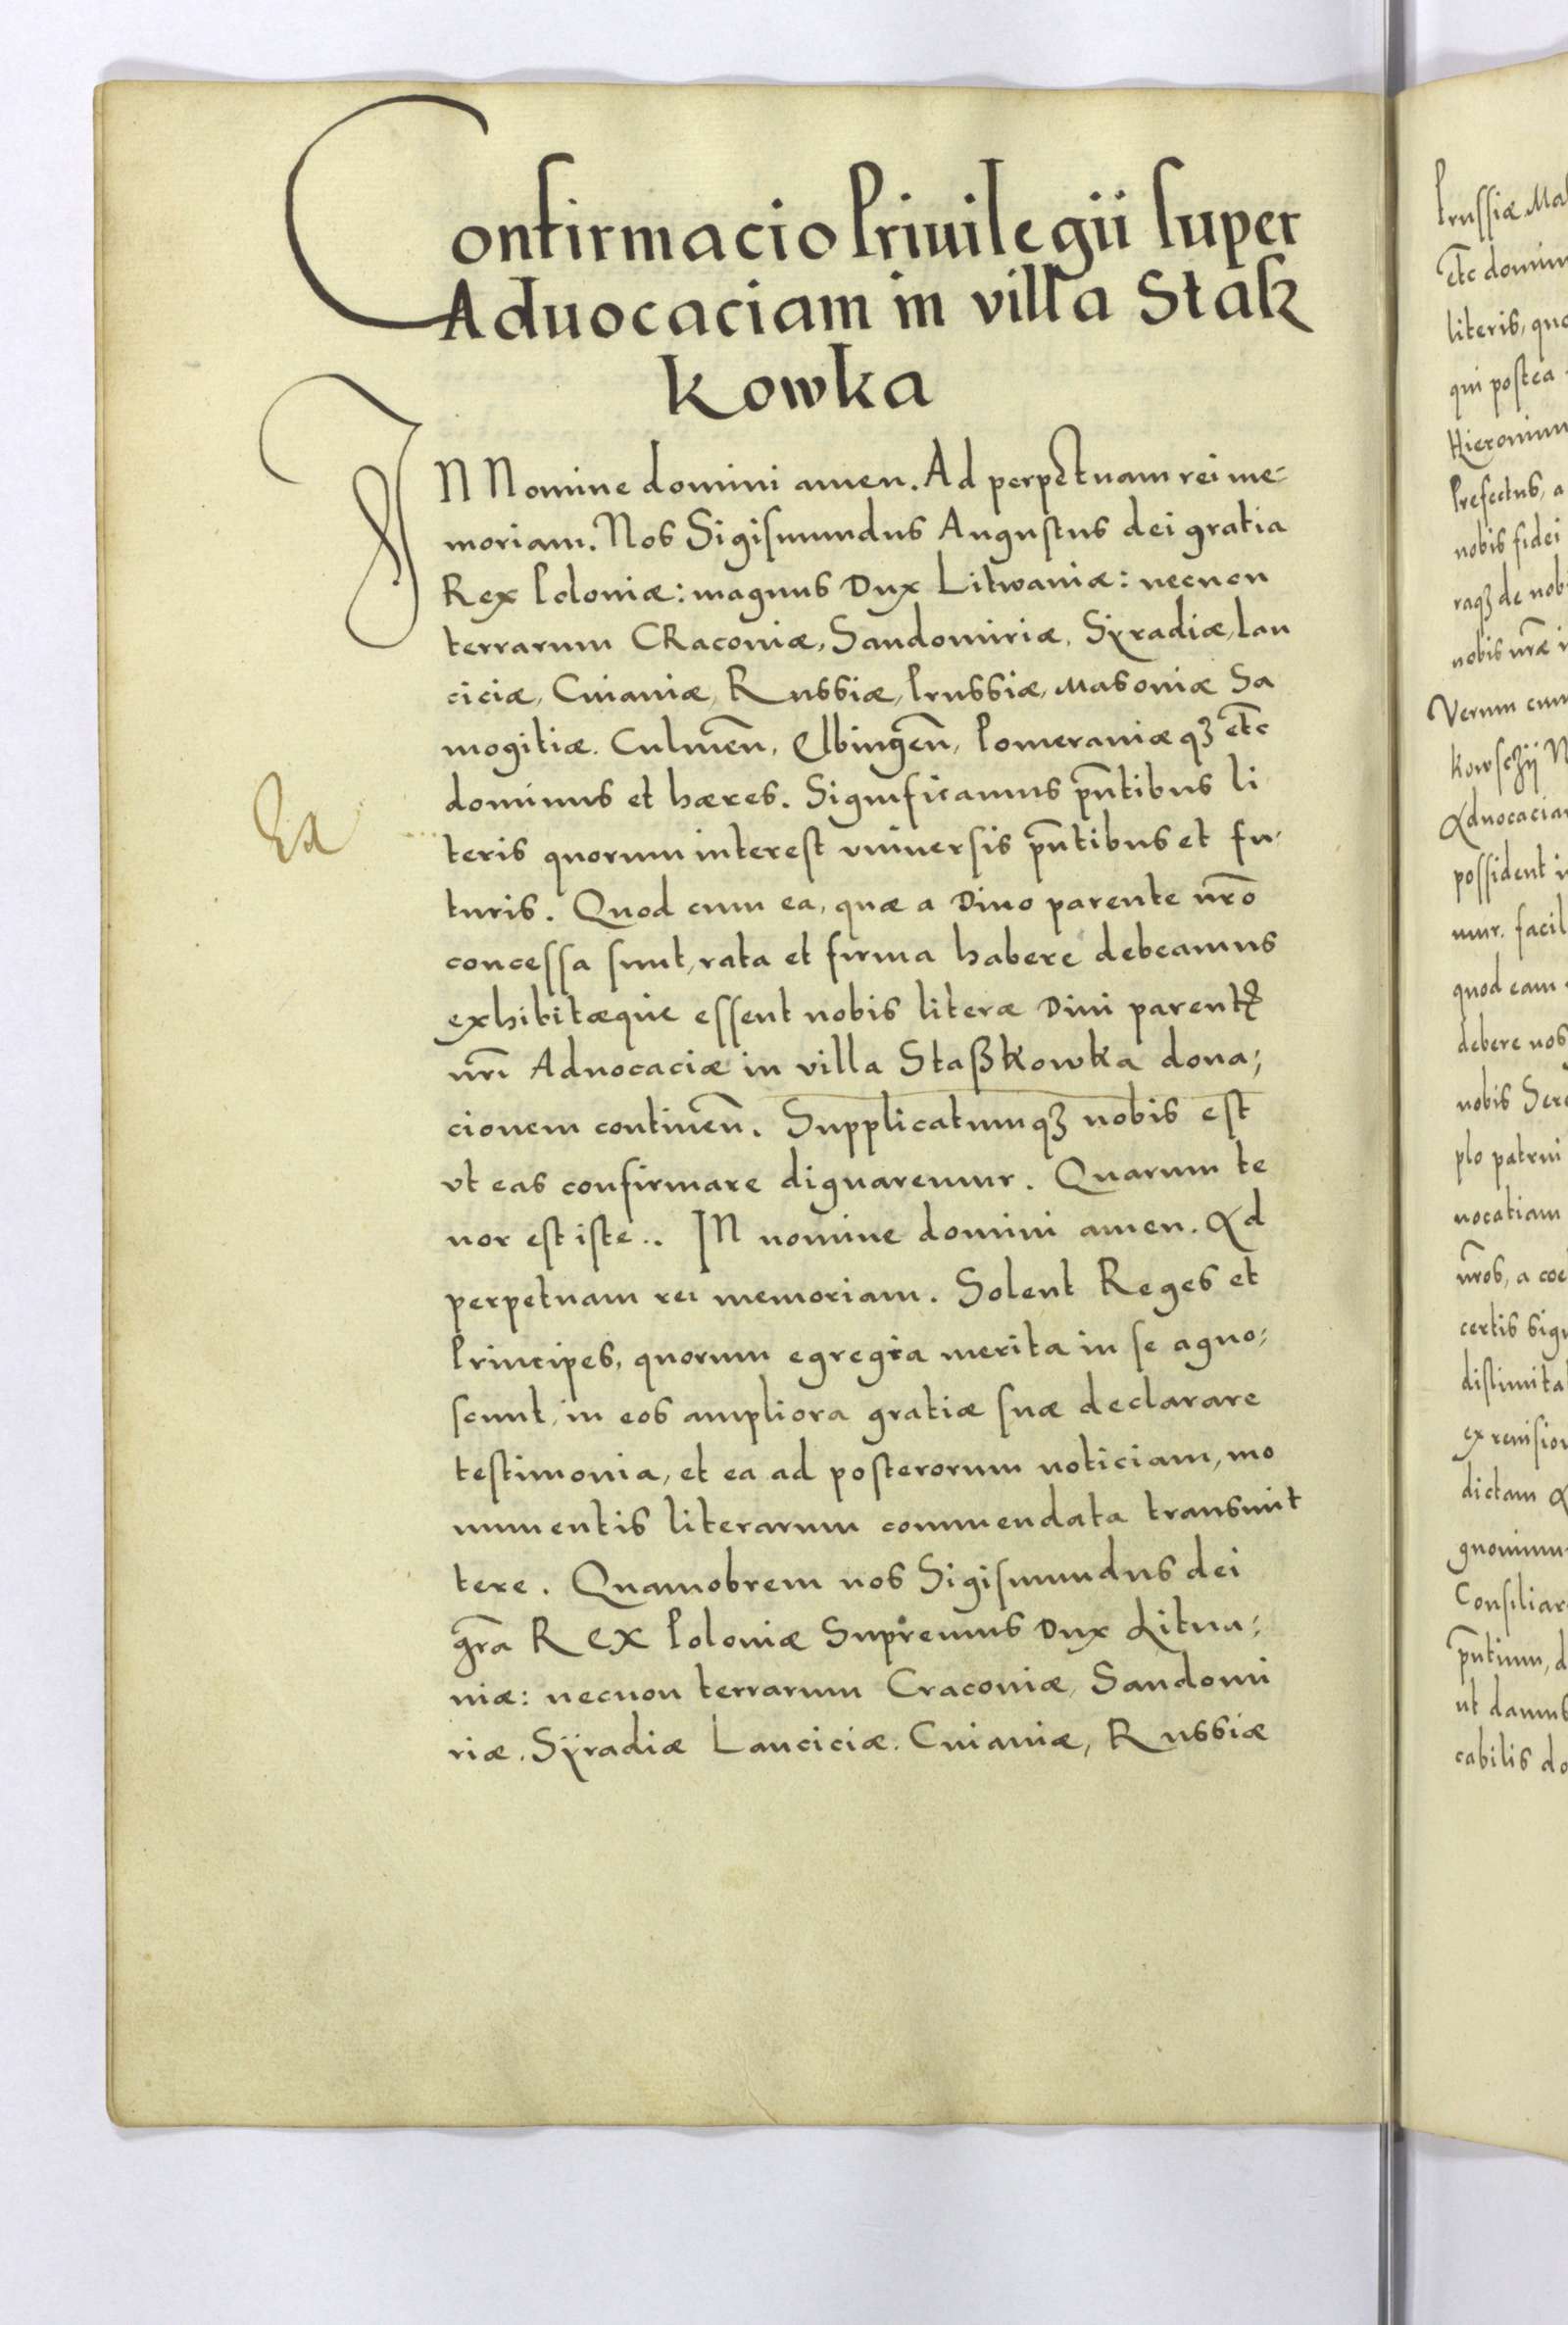 Confirmacio Priuilegii super
Aduocaciam in villa Stasz
kowka
IN Nomine domini amen. Ad perpetuam rei me-
moriam. Nos Sigismundus Augustus dei gratia
Rex Poloniæ: magnus Dux Litwaniæ: necnon
terrarum CRaconiæ, Sandomiriæ, Syradiæ, Lan
ciciæ, Cuiauiæ, Russiæ, Prussiæ, Masouiæ Sa
mogitiæ. Culmeñ, Elbingeñ, Pomeraniæqꝫ etc̄
dominus et hæres. Significamus pn̄tibus li
teris quorum interest vniuersis pn̄tibus et fu-
Ea
turis. Quod cum ea, quæ a Diuo parente nr̄o
concessa sunt, rata et firma habere debeamus
exhibitæque essent nobis literæ Diui parentꝭ
nr̄i Aduocaciæ in villa Staßkowka dona;
cionem contineñ. Supplicatumqꝫ nobis est
vt eas confirmare dignaremur. Quarum te
nor est iste.. IN nomine domini amen. Ad
perpetuam rei memoriam. Solent Reges et
Principes, quorum egregia merita in se agno;
scunt, in eos ampliora gratiæ suæ declarare
testimonia, et ea ad posterorum noticiam, mo
numentis literarum commendata transmit
tere. Quamobrem nos Sigismundus dei
gr̄a REX Poloniæ Supremus Dux Litua;
niæ: necnon terrarum Craconiæ, Sandomi
riæ. Sÿradiæ Lanciciæ. Cuiauiæ, Russiæ
Prussiæ Ma
etc̄ domin
literis, quo
qui postea
Hieronimu
Prefectus, a
nobis fidei
raqꝫ de nob
nobis nr̄æ i
Verum cum
kowsczÿ N
Aduocaciam
possident i
mur. facil
quod eam
debere nos
nobis Sere
plo patrui
uocatiam
nr̄os, a coe
certis sign
distimita
ex reuision
dictam A
gnouimu
Consiliar
pn̄tium, d
ut damus
cabilis do